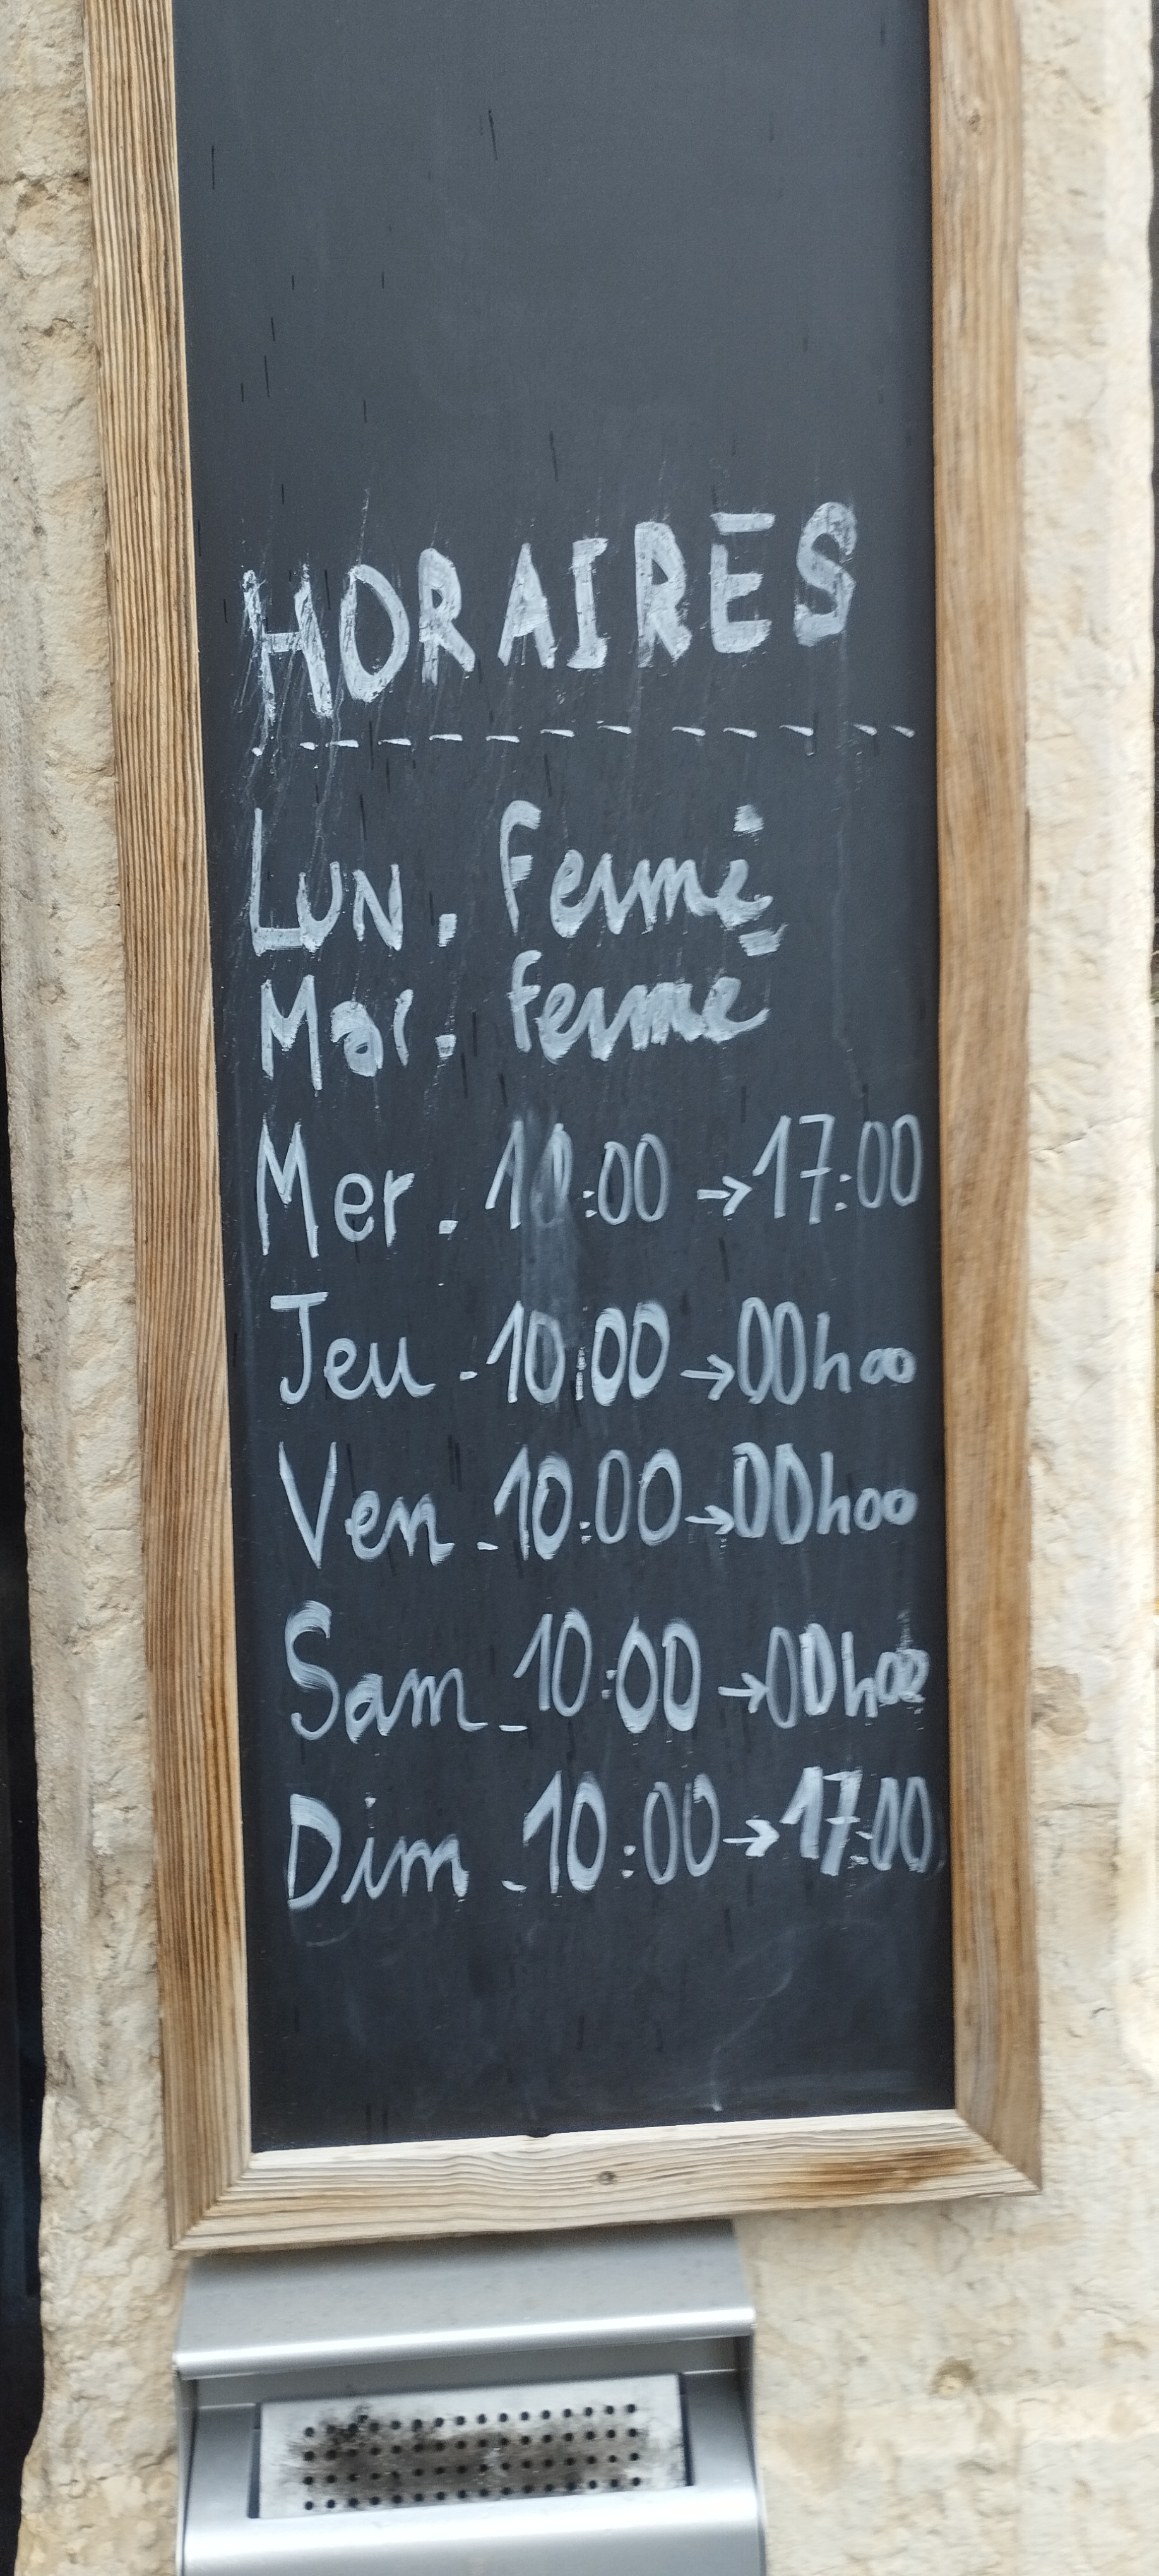 HORAIRES
LUN. Fermé
Mar. fermé
Mer. 10:00 → 17:00
Jeu - 10:00 → 00h00
Ven - 10:00 → 00h00
Sam - 10:00 → 00h00
Dim - 10:00 → 17:00